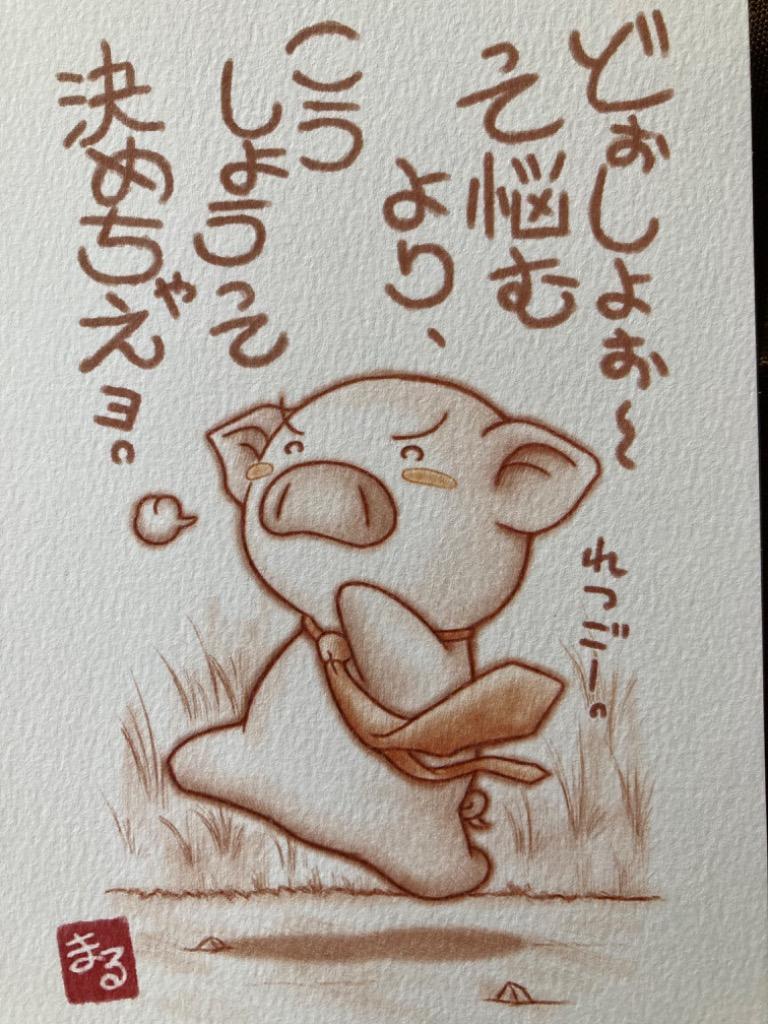 どぉしよぉ～
って悩む
より、
こう
しようって
決めちゃえョ。
れつごー。
まる